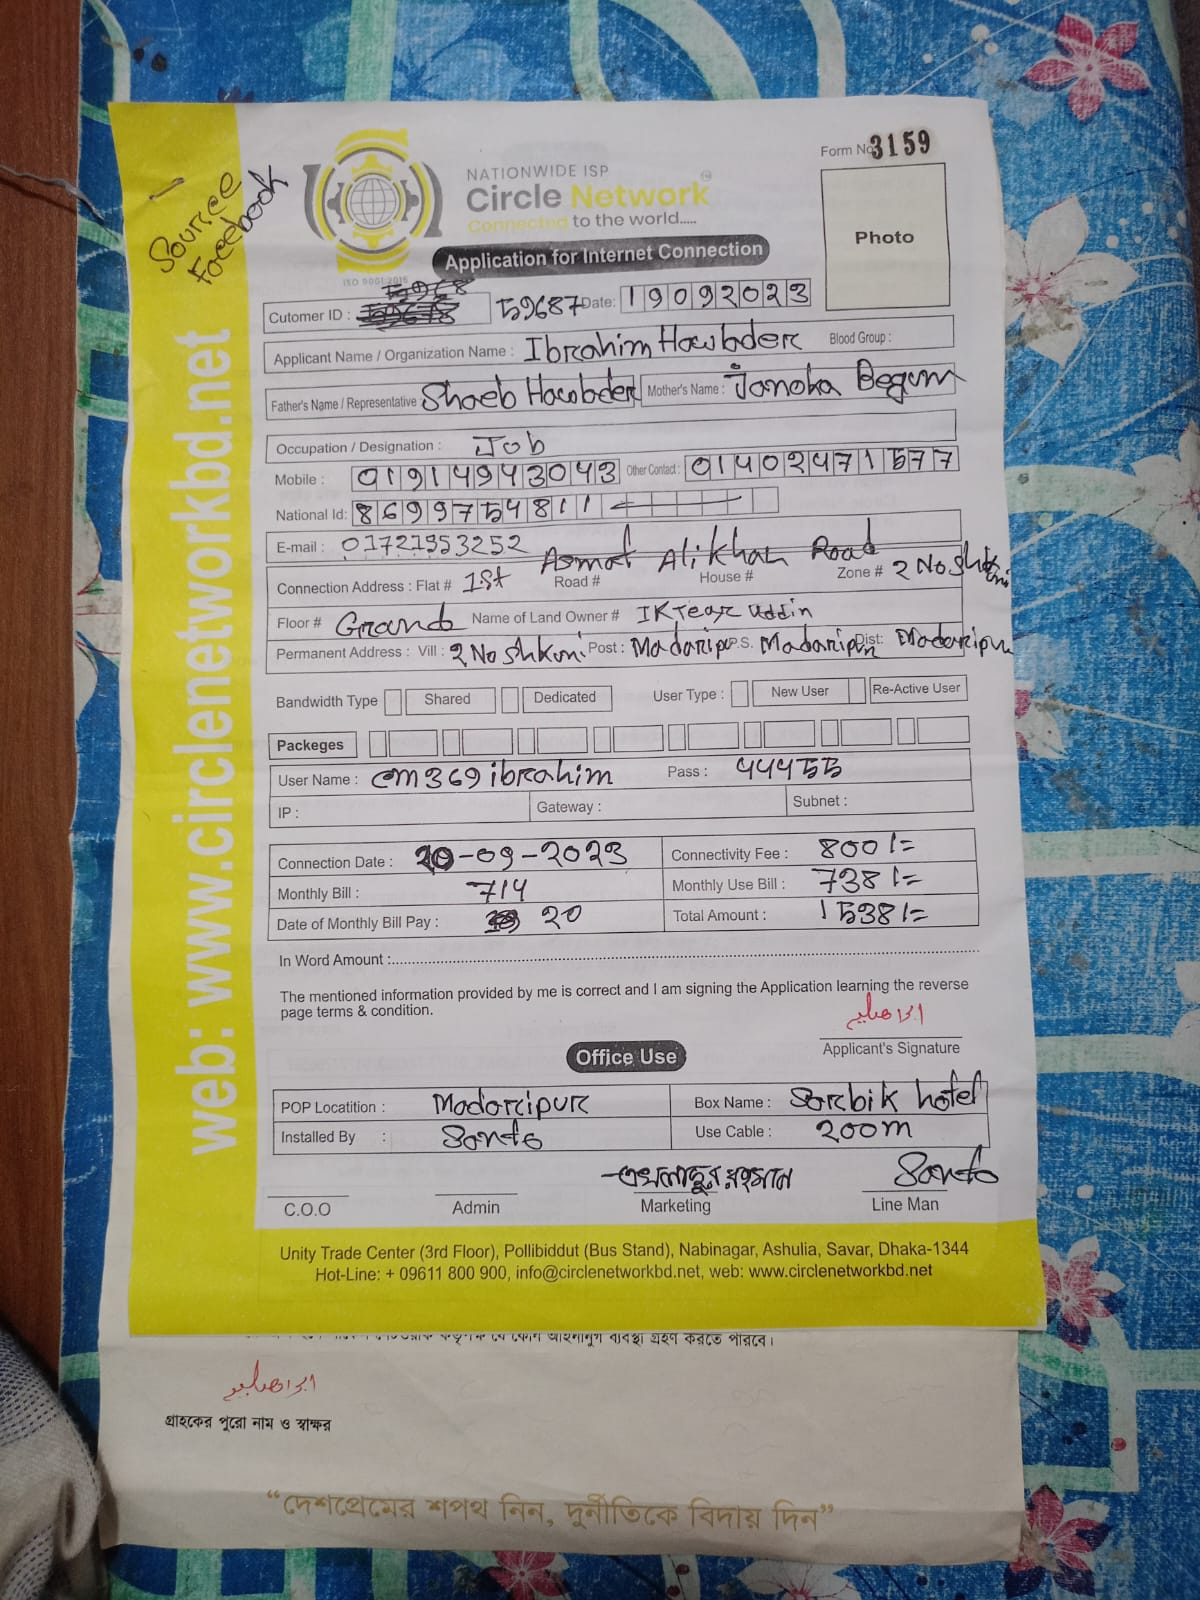 Source
Facebook
NATIONWIDE ISP
Circle Network
Connected to the world.....
ISO 9001:2015
Form No 3159
Photo
Application for Internet Connection
Cutomer ID : 59687 Date: 19092023
Applicant Name / Organization Name : Ibrahim Howlader Blood Group :
Father's Name / Representative Shoeb Howlader Mother's Name : Janoka Begum
Occupation / Designation : Job
Mobile : 01914943043 Other Contact : 01402471577
National Id: 8699754811
E-mail : 01721353252
Connection Address : Flat # 1st Road # Asmat Ali khan Road House # Zone # 2 No Shkuni
Floor # Grand Name of Land Owner # IKTear uddin
Permanent Address : Vill : 2 No Shkuni Post : Madaripur P.S. Madaripur Dist: Madaripur
Bandwidth Type Shared Dedicated User Type : New User Re-Active User
Packeges
User Name : cm369ibrahim Pass : 44455
IP : Gateway : Subnet :
Connection Date : 20-09-2023 Connectivity Fee : 800/=
Monthly Bill : 714 Monthly Use Bill : 738/=
Date of Monthly Bill Pay : 20 Total Amount : 1538/=
In Word Amount :
The mentioned information provided by me is correct and I am signing the Application learning the reverse
page terms & condition.
Applicant's Signature
Office Use
POP Locatition : Madaripur Box Name : Sarbik hotel
Installed By : Santo Use Cable : 200m
Santo
C.O.O Admin Marketing Line Man
Unity Trade Center (3rd Floor), Pollibiddut (Bus Stand), Nabinagar, Ashulia, Savar, Dhaka-1344
Hot-Line: + 09611 800 900, info@circlenetworkbd.net, web: www.circlenetworkbd.net
web: www.circlenetworkbd.net
যে কোন আইনানুগ ব্যবস্থা গ্রহণ করতে পারবে।
গ্রাহকের পুরো নাম ও স্বাক্ষর
“দেশপ্রেমের শপথ নিন, দুর্নীতিকে বিদায় দিন”